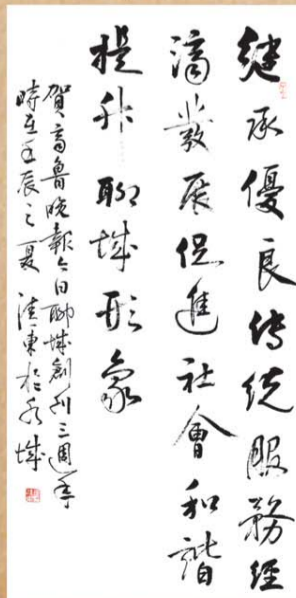 繼承優良傳統服務經
濟發展促進社會和諧
提升聊城形象
賀齊魯晚報今日聊城創刊三週年
時在壬辰之夏 東於水城